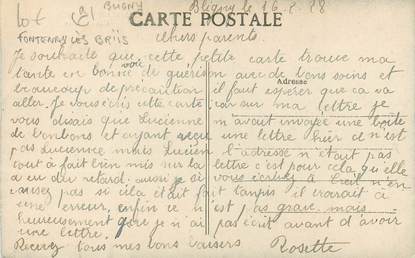 lot 21 BLIGNY Bligny le 16. 2. 28
CARTE POSTALE
FONTENAY LÈS BRIIS chers parents
Je souhaite que cette petite carte trouve ma
tante en bonne voie de guérison avec de bons soins et
beaucoup de précaution il faut espérer que ça va
Adresse
aller. Je vous écris cette carte car sur ma lettre je
vous disais que Lucienne m'avait envoyée une boîte
de bonbons et ayant reçu une lettre hier ce n'est
pas Lucienne mais Lucien l'adresse n'était pas
tout à fait bien mis sur la lettre c'est pour cela qu'elle
a eu du retard. aussi je si vous écrivez à
pas si cela était fait tanpis il croirait à
une erreur. enfin ce n'est pas grave mais
heureusement que je n'ai pas écrit avant d'avoir
une lettre.
Recevez tous mes bons baisers Rosette